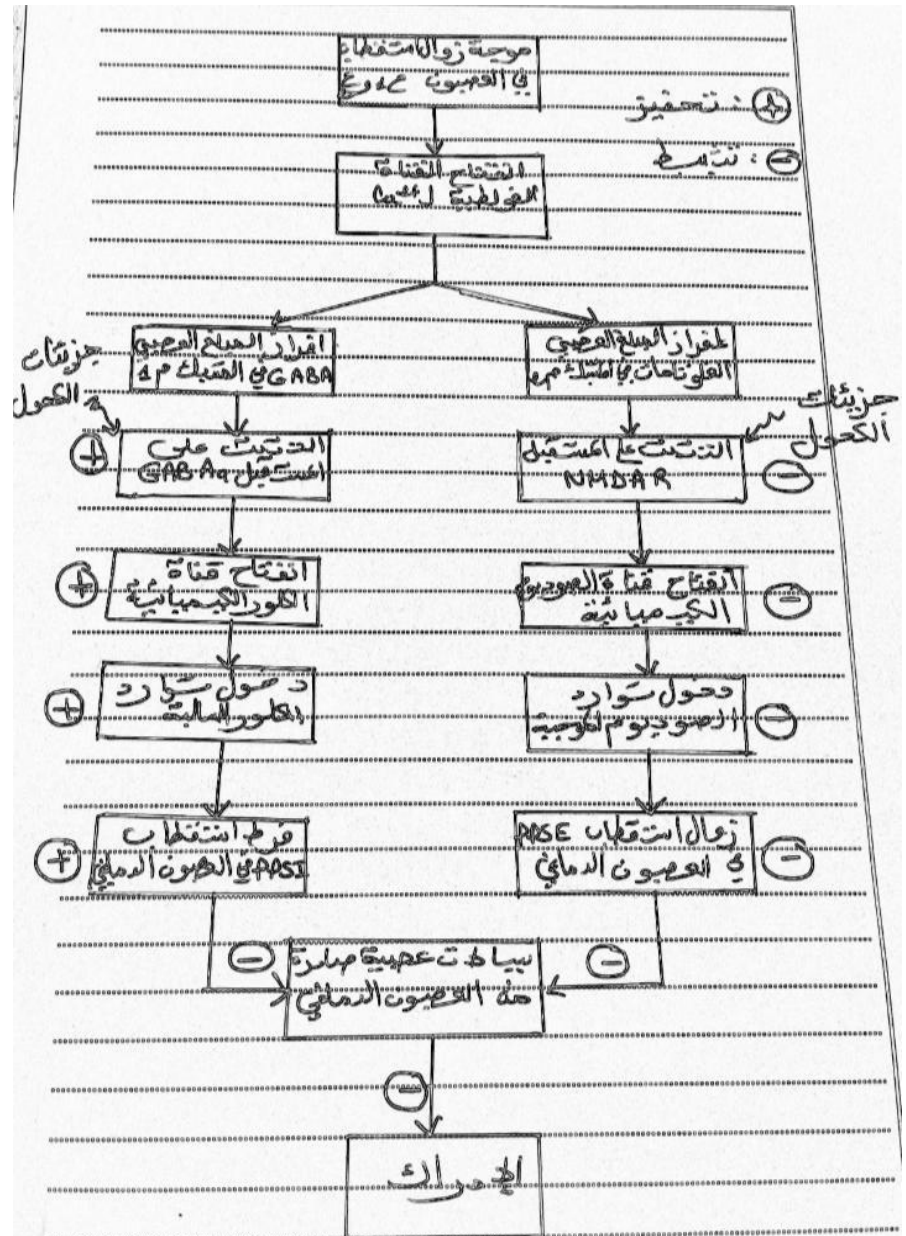 موجة زوال استقطاب
في العصبون ع1 و ع2
⊕ : تحفيز
⊖ : تثبيط
انفتاح القناة
الفولطية لـ Ca++
افراز المبلغ العصبي
GABA في المشبك م1
افراز المبلغ العصبي
الغلوتامات في المشبك م2
جزيئات
الكحول
جزيئات
الكحول
التثبيت على
المستقبل GABAa
+
التثبيت على المستقبل
NMDAR
-
انفتاح قناة
الكلور الكيميائية
+
انفتاح قناة الصوديوم
الكيميائية
-
دخول شوارد
الكلور السالبة
+
دخول شوارد
الصوديوم الموجبة
-
فرط استقطاب
PPSI في العصبون الدماغي
+
زوال استقطاب PPSE
في العصبون الدماغي
-
-
-
سيالات عصبية صادرة
من العصبون الدماغي
-
الادراك